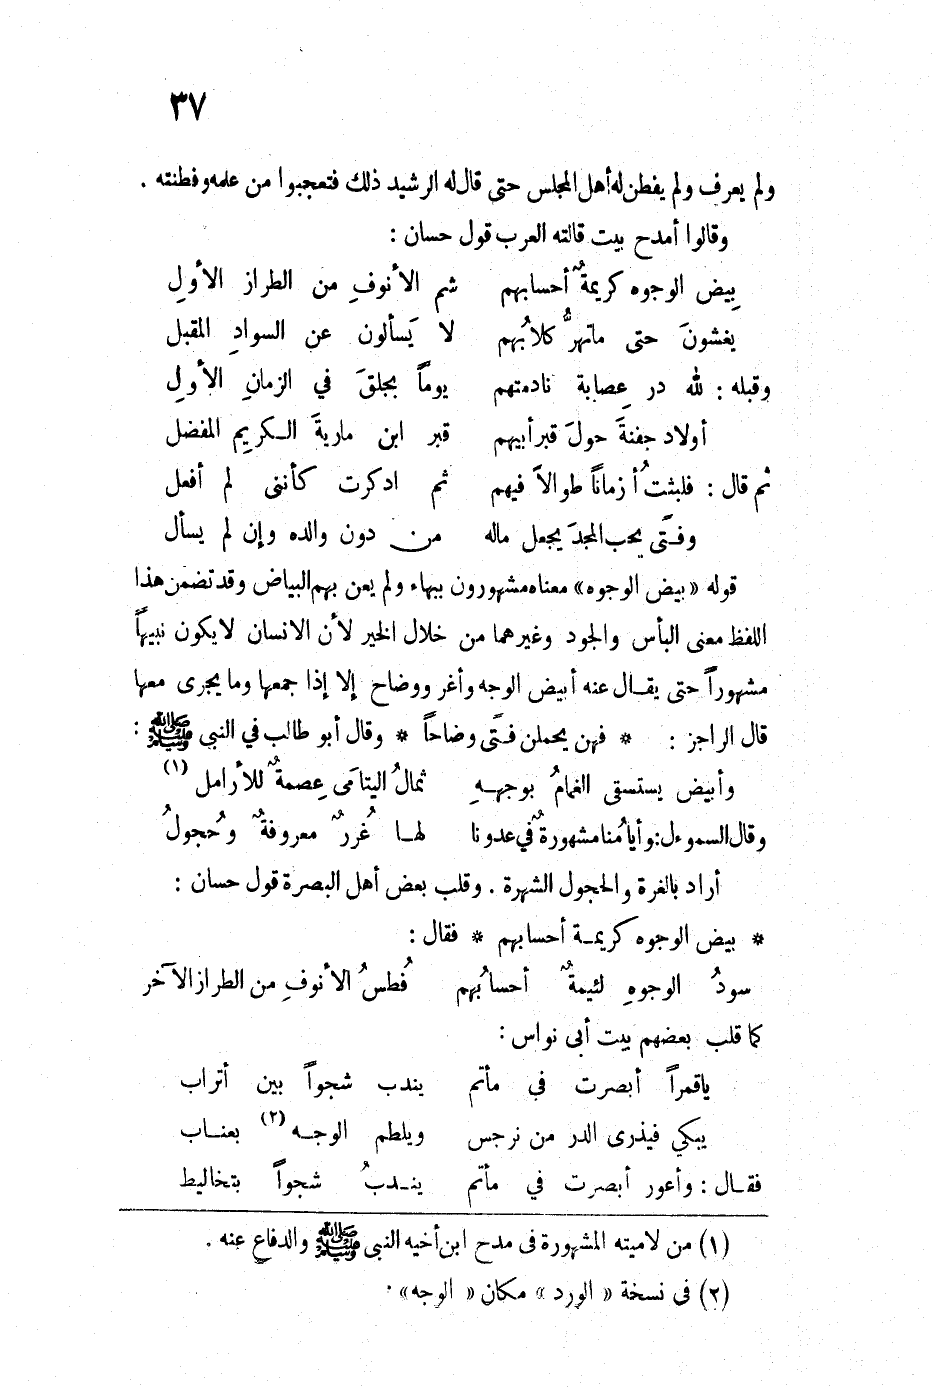 ٣٧
ولم يعرف ولم يفطن له أهل المجلس حتى قال له الرشيد ذلك فتعجبوا من علمه وفطنته .
وقالوا أمدح بيت قالته العرب قول حسان :
بِيض الوجوه كريمةٌ أحسابهم شم الأنوفِ من الطراز الأولِ
يغشونَ حتى ماتهرُّ كلابُهم لا يَسألون عن السوادِ المقبل
وقبله : لله در عِصابة نادمتهم يوماً بجلقَ في الزمانِ الأولِ
أولاد جفنةَ حولَ قبر أبيهم قبر ابن ماريةَ الكريمِ المفضل
ثم قال : فلبثتُ أزماناً طوالاً فيهم ثم ادكرت كأننى لم أفعل
وفتَّى يحب المجدَ يجعل ماله من دون والده وإن لم يسأل
قوله «بيض الوجوه» معناه مشهورون ببهاء ولم يعن بهم البياض وقد تضمن هذا
اللفظ معنى البأس والجود وغيرهما من خلال الخير لأن الانسان لا يكون نبيهاً
مشهوراً حتى يقال عنه أبيض الوجه وأغر ووضاح إلا إذا جمعها وما يجرى معها
قال الراجز : * فهن يحملن فتَّى وضاحاً * وقال أبو طالب في النبي ﷺ :
وأبيض يستسقى الغمامُ بوجههِ ثمالُ اليتامَى عِصمةٌ للأرامل (١)
وقال السموءل : وأيامُنا مشهورةٌ في عدونا لها غُررٌ معروفةٌ وحُجولُ
أراد بالغرة والحجول الشهرة . وقلب بعض أهل البصرة قول حسان :
* بيض الوجوه كريمة أحسابهم * فقال :
سودُ الوجوهِ لئيمةٌ أحسابُهم فُطسُ الأنوفِ من الطراز الآخر
كما قلب بعضهم بيت أبى نواس :
ياقمراً أبصرت في مأتم يندب شجواً بين أتراب
يبكي فيذرى الدر من نرجس ويلطم الوجه (٢) بعناب
فقال : وأعور أبصرت في مأتم يندبُ شجواً بتخاليط
(١) من لاميته المشهورة فى مدح ابن أخيه النبى ﷺ والدفاع عنه .
(٢) فى نسخة « الورد » مكان « الوجه» .